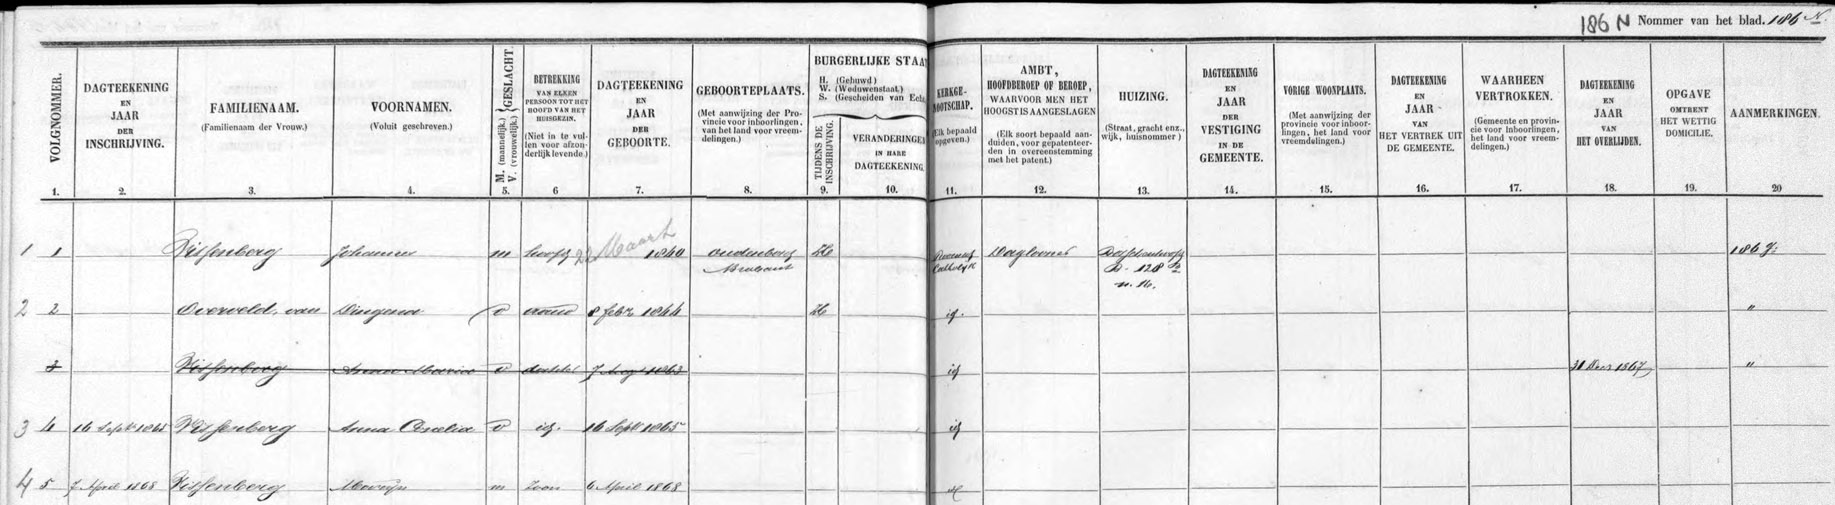 186 N Nommer van het blad. 186 N.
VOLGNOMMER.
1.
DAGTEEKENING
EN
JAAR
DER
INSCHRIJVING.
2.
FAMILIENAAM.
(Familienaam der Vrouw.)
3.
VOORNAMEN.
(Voluit geschreven.)
4.
M. (mannelijk.) V. (vrouwelijk.) GESLACHT.
5.
BETREKKING
VAN ELKEN
PERSOON TOT HET
HOOFD VAN HET
HUISGEZIN.
(Niet in te vul-
len voor afzon-
derlijk levende.)
6
DAGTEEKENING
EN
JAAR
DER
GEBOORTE.
7.
GEBOORTEPLAATS.
(Met aanwijzing der Pro-
vincie voor inboorlingen,
van het land voor vreem-
delingen.)
8.
BURGERLIJKE STAAT
H. (Gehuwd)
W. (Weduwenstaat.)
S. (Gescheiden van Echt
TIJDENS DE INSCHRIJVING.
9.
VERANDERINGEN
IN HARE
DAGTEEKENING.
10.
KERKGE-
NOOTSCHAP.
(Elk bepaald
opgeven.)
11.
AMBT,
HOOFDBEROEP OF BEROEP,
WAARVOOR MEN HET
HOOGST IS AANGESLAGEN
(Elk soort bepaald aan-
duiden, voor gepatenteer-
den in overeenstemming
met het patent.)
12.
HUIZING.
(Straat, gracht enz.,
wijk, huisnommer)
13.
DAGTEEKENING
EN
JAAR
DER
VESTIGING
IN DE
GEMEENTE.
14.
VORIGE WOONPLAATS.
(Met aanwijzing der
provincie voor inboor-
lingen, het land voor
vreemdelingen.)
15.
DAGTEEKENING
EN
JAAR
VAN
HET VERTREK UIT
DE GEMEENTE.
16.
WAARHEEN
VERTROKKEN.
(Gemeente en provin-
cie voor Inboorlingen,
het land voor vreem-
delingen.)
17.
DAGTEEKENING
EN
JAAR
VAN
HET OVERLIJDEN.
18.
OPGAVE
OMTRENT
HET WETTIG
DOMICILIE.
19.
AANMERKINGEN.
20
1 1 Nissenberg Johannes m hoofd 22 Maart 1840 oudenbosch H Roomsch Dagloner
Brabant Catholijk D. 128
n. 16.
2 2 Overveld, van Dingena v vrouw 8 febr 1844 H id. "
3 Nissenberg Anna Maria v dochter 7 Aug 1863 id 31 Dec 1867 "
3 4 16 Sept 1865 Nissenberg Anna v id. 16 Sept 1865 id
4 5 7 April 1868 Nissenberg m zoon 6 April 1868 id